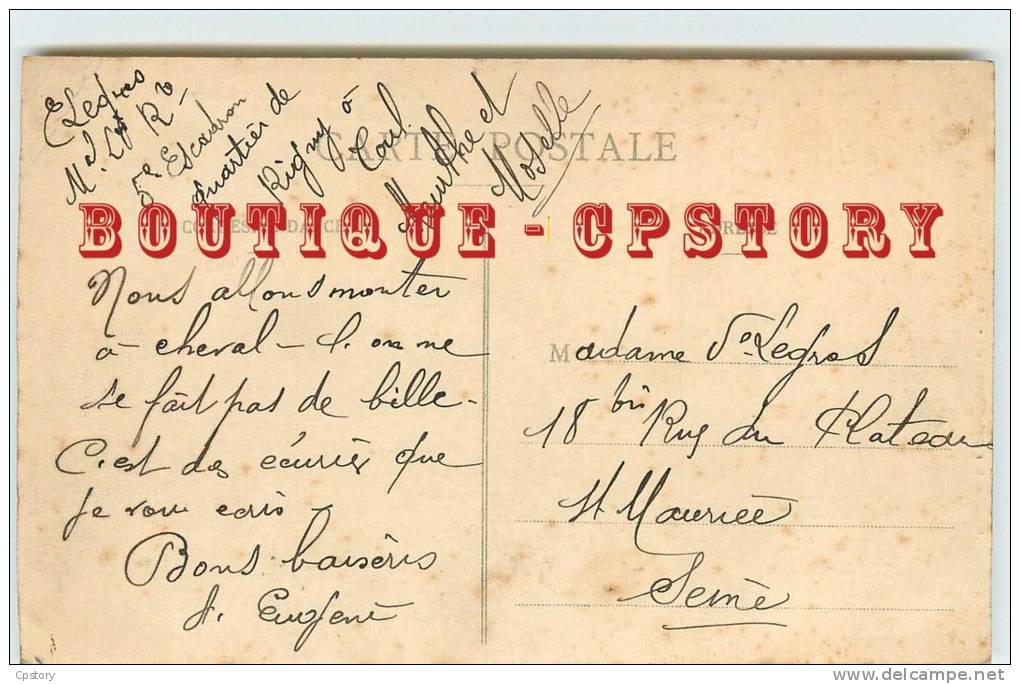 E Legros
Mal. Lgt R
5e Escadron
quartier de
Rigny à
Toul.
Meurthe et
Moselle
CARTE POSTALE
BOUTIQUE - CPSTORY
Nous allons monter
à cheval - l'on ne
se fait pas de bille -
C'est des écuries que
je vous écris -
Bons baisers
Eugène
Madame Ve Legros
18 bis Rue du Plateau
St Maurice
Seine
Cpstory
www.delcampe.net